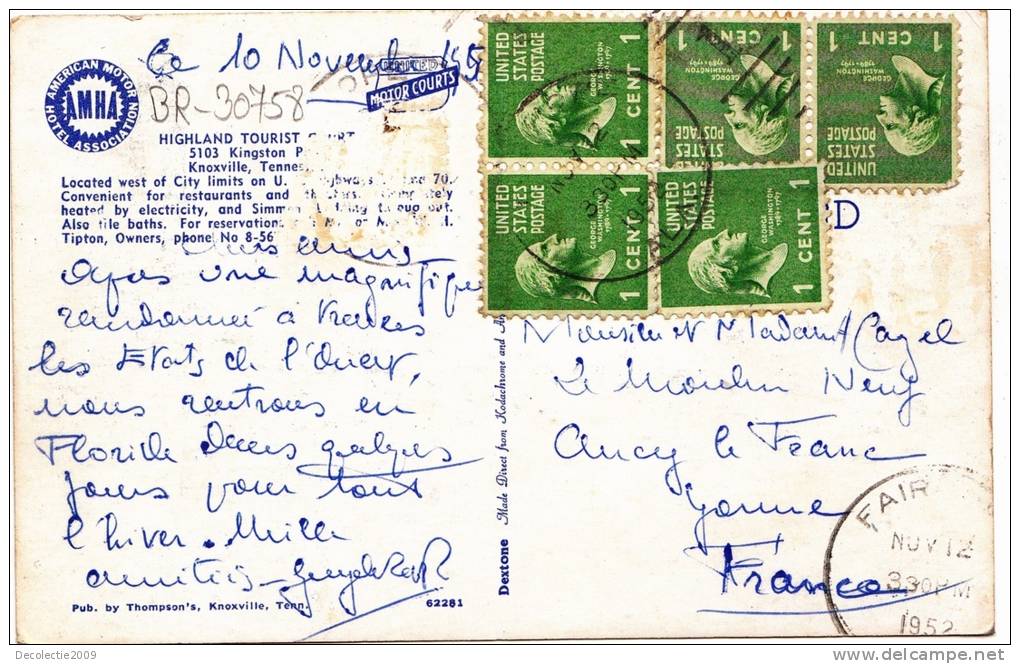 Ce 10 Novembre 195
BR-30758
AMERICAN MOTOR HOTEL ASSOCIATION
AMHA
UNITED
MOTOR COURTS
HIGHLAND TOURIST COURT
5103 Kingston P
Knoxville, Tennes
Located west of City limits on U. Highways and 70.
Convenient for restaurants and
heated by electricity, and Simm
Also tile baths. For reservation
Tipton, Owners, phone No 8-56
Chers amis
Après une magnifique
randonnée à travers
les Etats de l'Ouest,
nous rentrons en
Floride dans quelques
jours pour tout
l'hiver. Mille
amitiés
Pub. by Thompson's, Knoxville, Tenn.
62281
Dextone Made Direct from Kodachrome and An
UNITED STATES POSTAGE
GEORGE WASHINGTON 1789-1797
1 CENT 1
UNITED STATES POSTAGE
GEORGE WASHINGTON 1789-1797
1 CENT 1
UNITED STATES POSTAGE
GEORGE WASHINGTON 1789-1797
1 CENT 1
UNITED STATES POSTAGE
GEORGE WASHINGTON 1789-1797
1 CENT 1
UNITED STATES POSTAGE
GEORGE WASHINGTON 1789-1797
1 CENT 1
NOV 12
330PM
1952
D
Monsieur et Madame Cazel
Le Moulin Neuf
Ancy le Franc
Yonne
France
FAIR
NOV 12
330PM
1952
Decolectie2009
www.delcampe.net